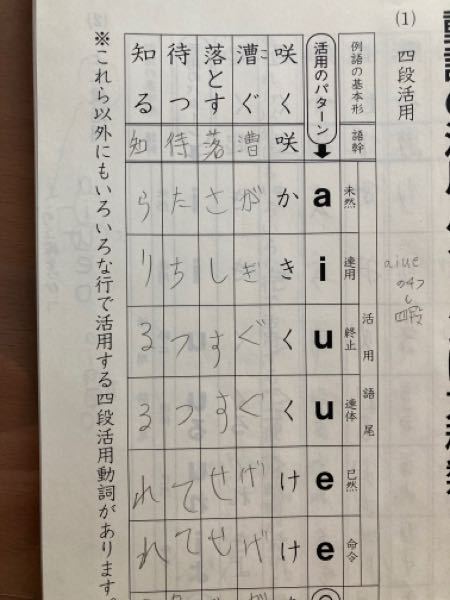 (1) 四段活用
aiue
の4つ
四段
例語の基本形 語幹 未然 連用 終止 連体 已然 命令
活用語尾
活用のパターン a i u u e e
咲く 咲 か き く く け け
漕ぐ 漕 が ぎ ぐ ぐ げ げ
こ
落とす 落 さ し す す せ せ
待つ 待 た ち つ つ て て
知る 知 ら り る る れ れ
※これら以外にもいろいろな行で活用する四段活用動詞があります。